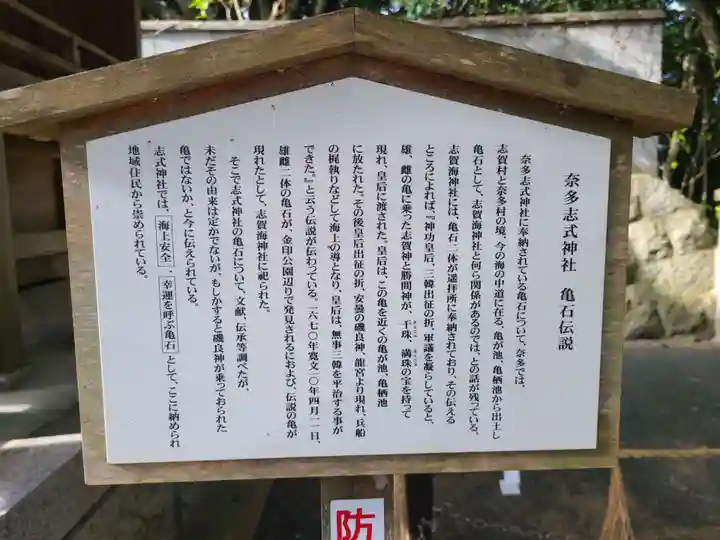 奈多志式神社 亀石伝説
奈多志式神社に奉納されている亀石について、奈多では、
志賀村と奈多村の境、今の海の中道に在る、亀が池、亀栖池から出土し
亀石として、志賀海神社と何らか関係があるのでは、との話が残っている。
志賀海神社には、亀石二体が遥拝所に奉納されており、その伝える
ところによれば、『神功皇后、三韓出征の折、軍議を凝らしていると、
雄、雌の亀に乗った志賀神と勝間神が、干珠、満珠の宝を持って
現れ、皇后に渡された。皇后は、この亀を近くの亀が池、亀栖池
に放たれた。その後皇后出征の折、安曇の磯良神、龍宮より現れ、兵船
の梶執りなどして海上の導となり、皇后は、無事三韓を平治する事が
できた。』と云う伝説が伝わっている。一六七〇年寛文一〇年四月一一日、
雄雌二体の亀石が、金印公園辺りで発見されるにおよび、伝説の亀が
現れたとして、志賀海神社に祀られた。
そこで志式神社の亀石について、文献、伝承等調べたが、
未だその由来は定かでないが、もしかすると磯良神が乗っておられた
亀ではないか、と今に伝えられている。
志式神社では、海上安全、幸運を呼ぶ亀石として、ここに納められ
地域住民から崇められている。
防